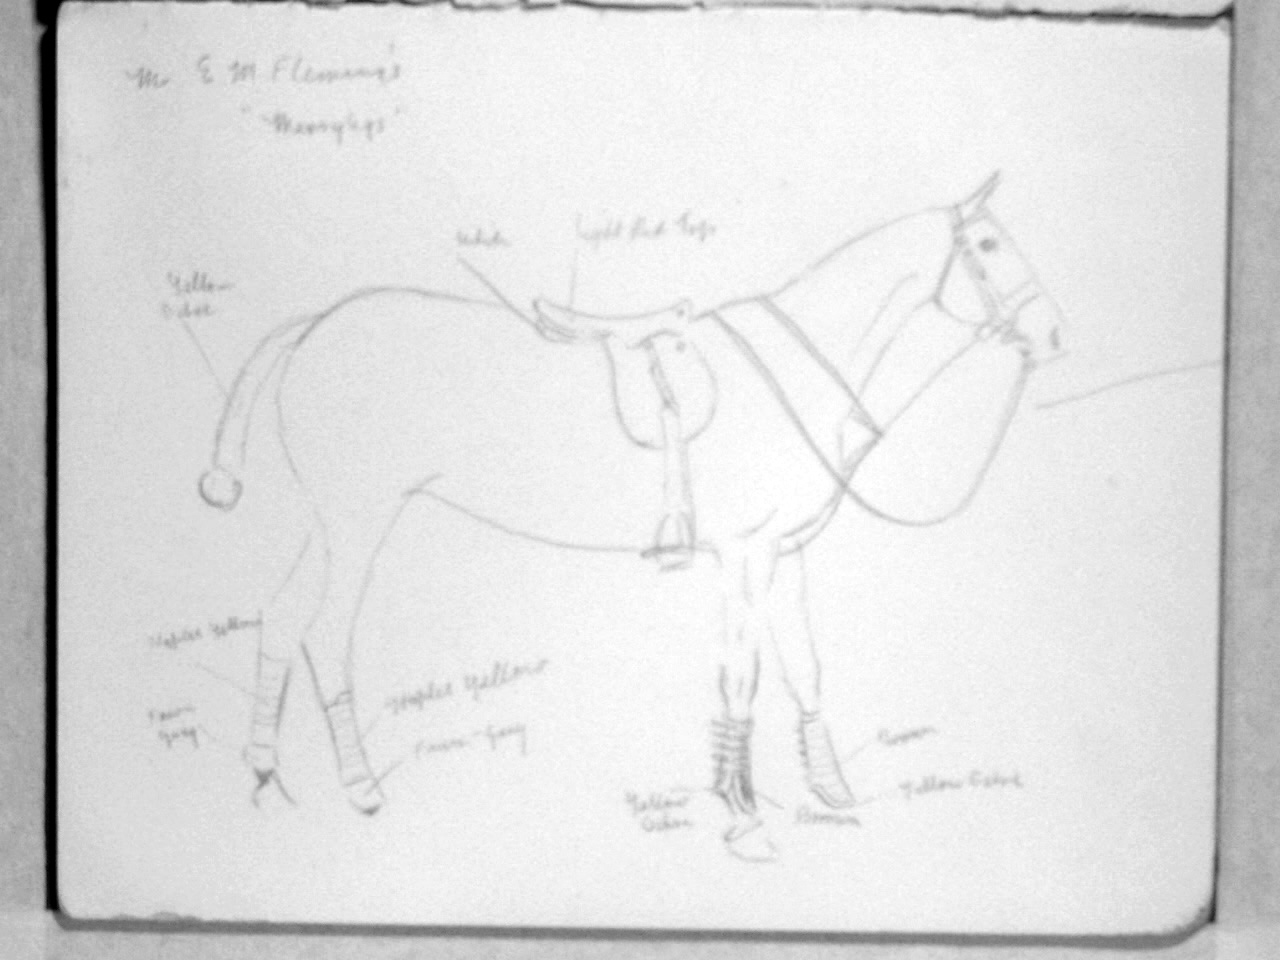 Mr E M Fleming's
"Merrylegs"
White
Light Red Top
Yellow
Ochre
Naples Yellow
Fawn
Grey
Naples Yellow
Fawn-Grey
Brown
Yellow Ochre
Yellow
Ochre
Brown